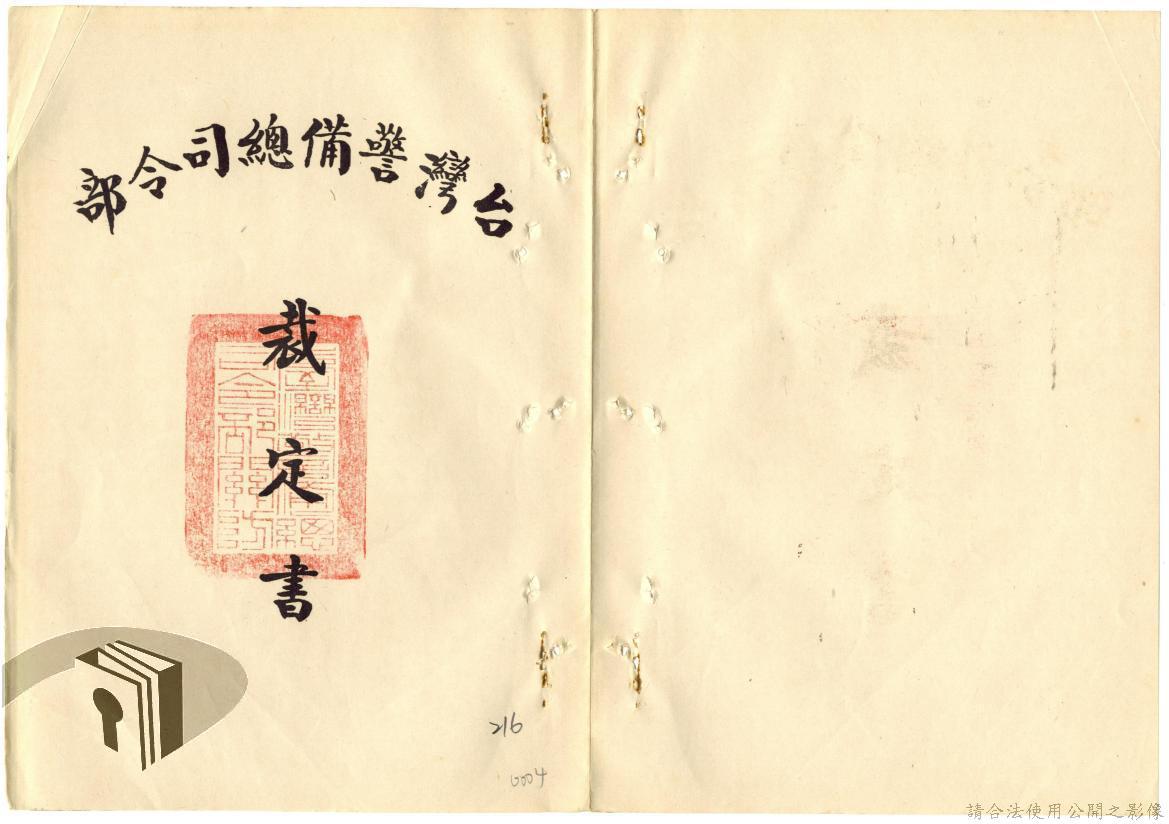 台灣警備總司令部
裁定書
216
0004
請合法使用公開之影像